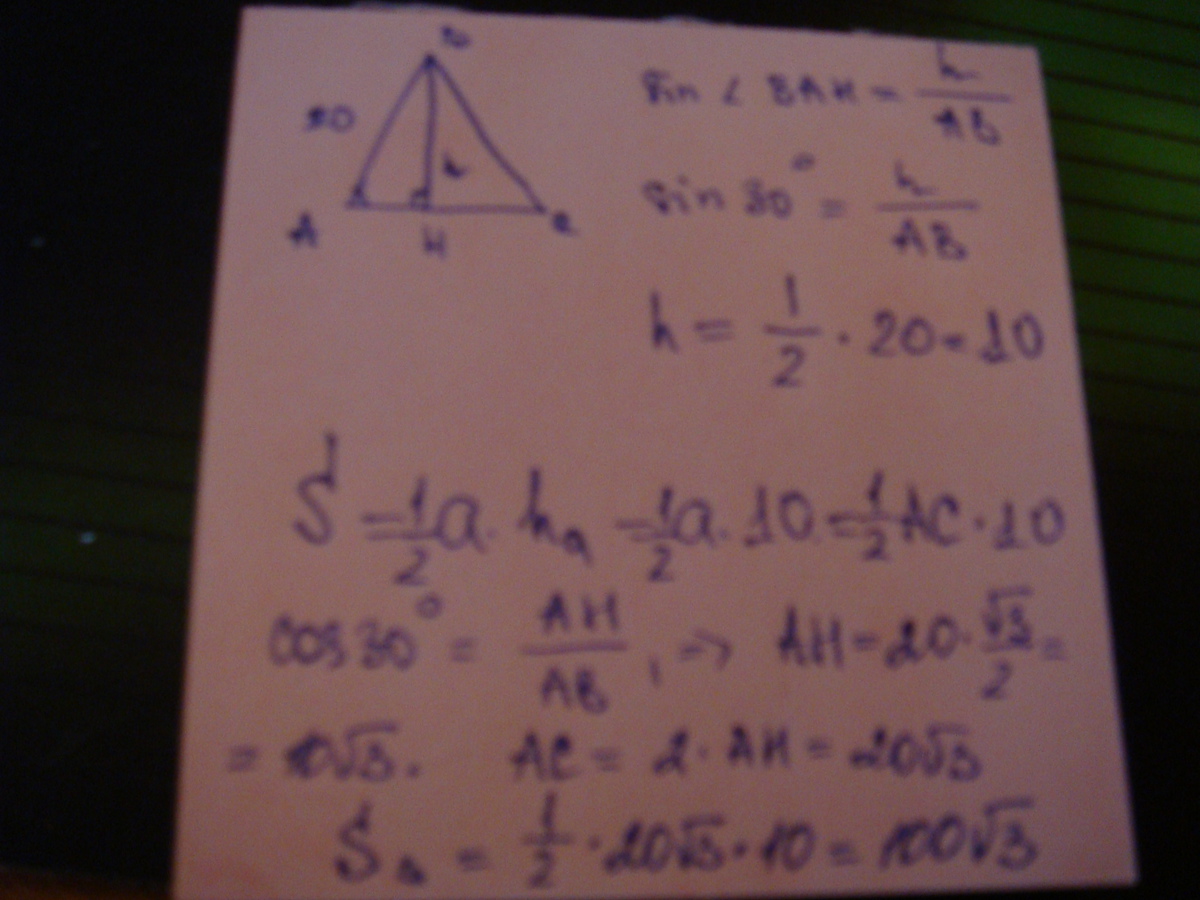 B
20
h
A H C
sin ∠ BAH = h/AB
sin 30° = h/AB
h = 1/2 · 20 = 10
S = 1/2 a · hₐ = 1/2 a · 10 = 1/2 AC · 10
cos 30° = AH/AB, → AH = 20 · √3/2 =
= 10√3. AC = 2 · AH = 20√3
S▵ = 1/2 · 20√3 · 10 = 100√3